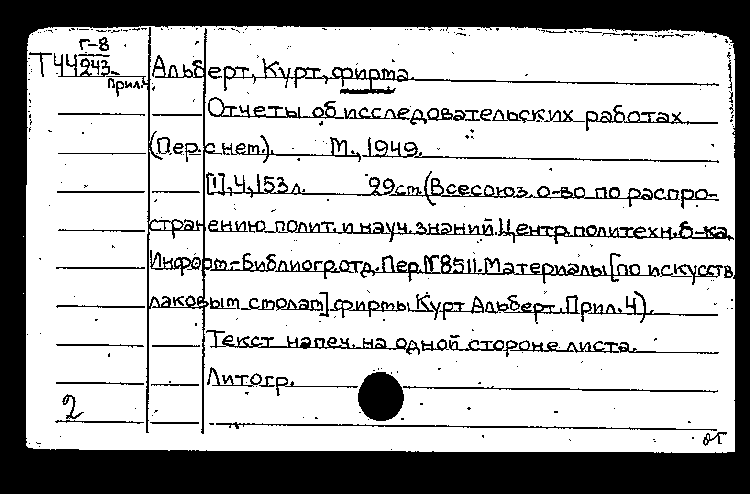 Г-8
Т44 243 Альберт, Курт, фирма.
Прил.4.
Отчеты об исследовательских работах.
(Пер. с нем.). М., 1949.
[1], 4, 153 л. 29 см. (Всесоюз. о-во по распро-
странению полит. и науч. знаний. Центр. политехн. б-ка.
Информ.-Библиогр. отд. Пер. № 8511. Материалы [по искусств.
лаковым смолам] фирмы Курт Альберт. Прил. 4).
Текст напеч. на одной стороне листа.
Литогр.
2